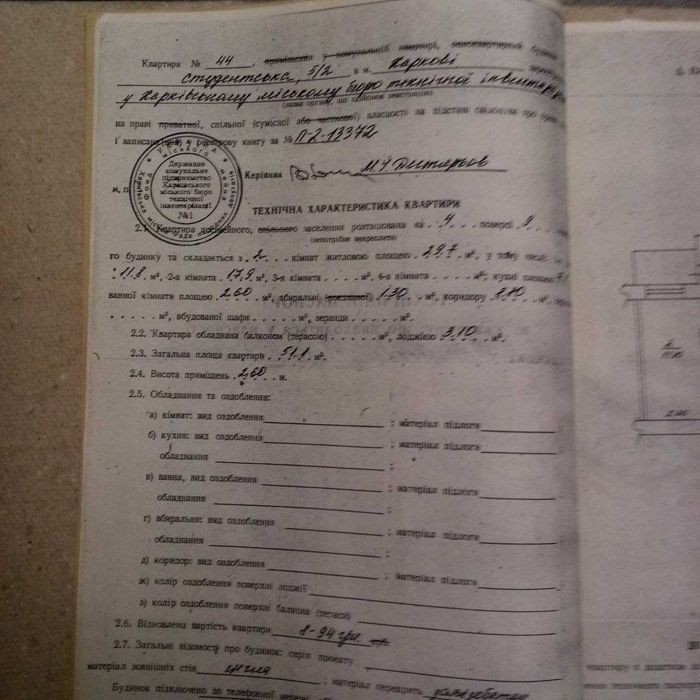 Квартира № 44, приміщення у комунальній квартирі, одноквартирний будинок
студентська, 5/2 в м. Харкові
у Харківському міському бюро технічної інвентаризації
(назва органу, що здійснює реєстрацію)
на праві приватної, спільної (сумісної або часткової) власності на підставі свідоцтва про право
і записана в реєстрову книгу за № П-2-13372
Державне
комунальне
підприємство
Харківського
міського бюро
технічної
інвентаризації
№1
Керівник
м. п.
ТЕХНІЧНА ХАРАКТЕРИСТИКА КВАРТИРИ
2.1. Квартира посімейного, спільного заселення розташована на 4 поверсі 9
(непотрібне закреслити)
го будинку та складається з 2 кімнат житловою площею 29,7 м², у тому числі
11.8 м², 2-а кімната 17,9 м², 3-я кімната . . . . м², 4-а кімната . . . . м², кухні площею
ванної кімнати площею 2,60 м², вбиральні (поєднаної) 1.30 м², коридору м²,
. . . . . м², вбудованої шафи . . . . . м², веранди . . . . . м².
2.2. Квартира обладнана балконом (терасою) . . . . . м², лоджією 3,10 м².
2.3. Загальна площа квартири 51.1 м².
2.4. Висота приміщень 2,60 м.
2.5. Обладнання та оздоблення:
а) кімнат: вид оздоблення ; матеріал підлоги
б) кухня: вид оздоблення ; матеріал підлоги
обладнання ;
в) ванна, вид оздоблення ; матеріал підлоги
обладнання ;
г) вбиральня: вид оздоблення ; матеріал підлоги
обладнання ;
д) коридор: вид оздоблення ; матеріал підлоги
ж) колір оздоблення поверхні лоджії
з) колір оздоблення поверхні балкона (тераси)
2.6. Відновлена вартість квартири 8-94 грн.
2.7. Загальні відомості про будинок: серія проекту
матеріал зовнішніх стін цегла ; матеріал перекрить залізобетон
Будинок підключено до телефонної мережі